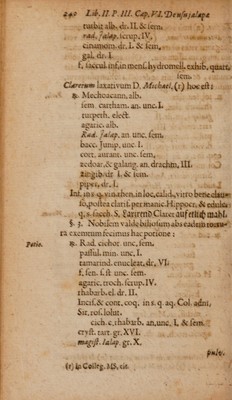 240 Lib. II. P. III. Cap. VI. De usu jalapæ
turbit alb. dr. II. & sem.
rad. jalap. scrup. IV.
cinamom. dr. I. & sem.
gal. dr. I.
f. saccul. inf. in mens. hydromell. exhib. quart.
sem.
Claretum laxativum D. Michael, (1) hoc est:
℞. Mechoacann. alb.
sem. cartham. an. unc. I.
turpeth. elect.
agaric. alb.
Rad. jalap. an. unc. sem.
bacc. Junip. unc. I.
cort. aurant. unc. sem.
zedoar. & galang. an. drachm. III.
zingib. dr. I. & sem.
pipri, dr. I.
Int. in s. q. vin. rhen. in loc. calid. vitro bene clau-
so, postea clarif. per manic. Hippocr. & edulc.
q. s. sacch. S. Laxirend Claret auf etlich mahl.
§. 3. Nobilem valde biliosum ab eadem
ra exemtum fecimus hac potione:
Potio. ℞. Rad. cichor. unc. sem.
passul. min. unc. I.
tamarind. enucleat. dr. VI.
f. sen. s. st. unc. sem.
agaric. troch. scrup. IV.
rhabarb. el. dr. II.
Incis. & cont. coq. in s. q. aq. Col. adm.
Sir. ros. solut.
cich. c. rhabarb. an. unc. I. & sem.
cryst. tart. gr. XVI.
magist. jalap. gr. X.
pulv.
(1) in Colleg. MS. cit.